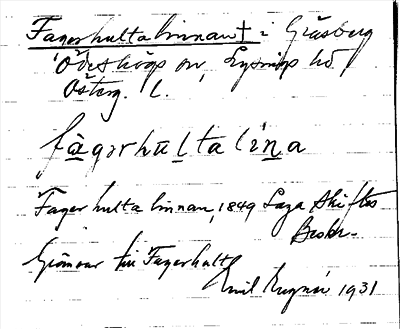 Fagerhultalinnan † i Gräsberg
Ödeshögs sn, Lysings hd
Österg. l.
fàgərhūltalìna
Fagerhultalinnan, 1849 Laga Skiftes
Beskr.
Gränsar till Fagerhult
Emil 1931